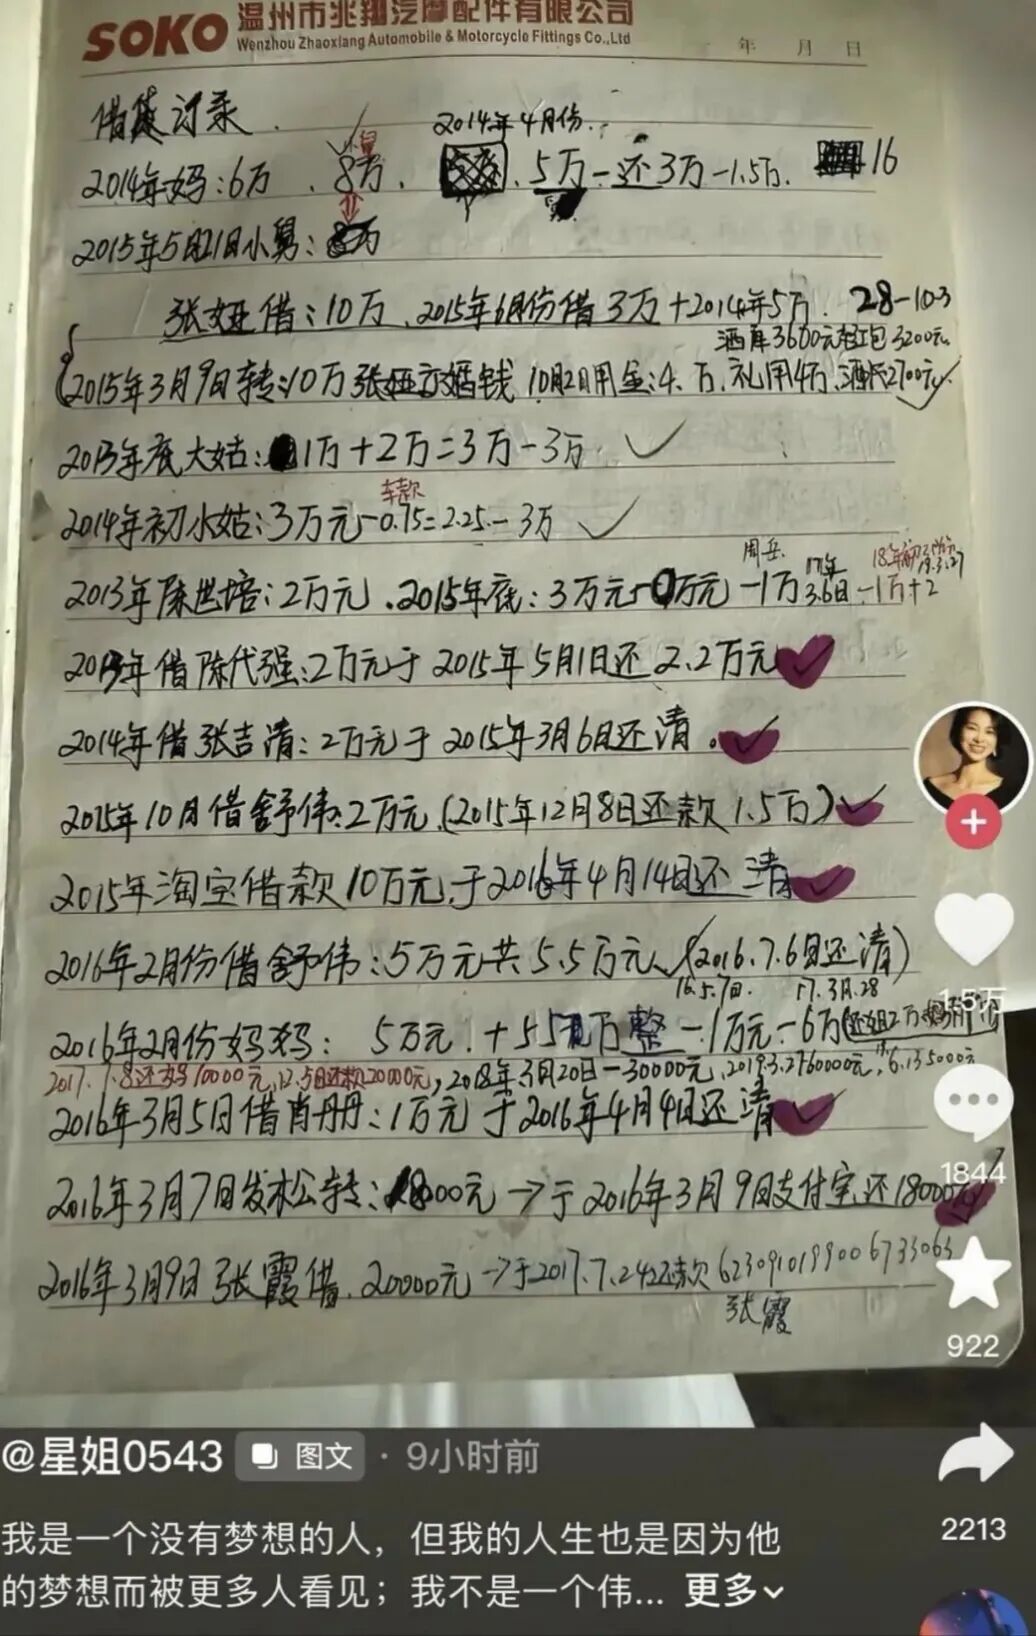 SOKO 温州市兆翔汽摩配件有限公司
Wenzhou Zhaoxiang Automobile & Motorcycle Fittings Co.,Ltd
年 月 日
借贷记录
2014年4月份
2014年妈:6万、8万、5万-还3万-1.5万. 16
2015年5月21日小舅:8万
张娅借:10万、2015年6月份借3万+2014年5万. 28-10.3
酒席3600元红包3200元
2015年3月9日转:10万张娅交婚钱 10月2日用金:4.万、礼用4万、酒代2700元
2013年底大姑:1万+2万=3万-3万
车款
2014年初小姑:3万元-0.75=2.25-3万
周岳 17年 18年
2013年陈世培:2万元、2015年底:3万元-0万元-1万 3.6日-1万+2
2013年借陈代强:2万元于2015年5月1日还2.2万元
2014年借张吉清:2万元于2015年3月6日还清。
2015年10月借舒伟:2万元(2015年12月8日还款1.5万)
2015年淘宝借款10万元于2016年4月14日还清
2016年2月份借舒伟:5万元共5.5万元、(2016.7.6日还清)
16.5.7日. 17.3月.28
2016年2月份妈妈: 5万元.+5万整-1万元-6万
2017.7.8还妈10000元,12.5日还款20000元,2018年3月20日-30000元,2019.3.27 60000元,6.13 5000元
2016年3月5日借肖丹丹:1万元于2016年4月4日还清
2016年3月7日发松转:18000元→于2016年3月9日支付宝还18000元
2016年3月9日张霞借.20000元→于2017.7.24还款6230910199006733063
张霞
1.5万
1844
922
2213
@星姐0543 图文 · 9小时前
我是一个没有梦想的人，但我的人生也是因为他
的梦想而被更多人看见；我不是一个伟... 更多